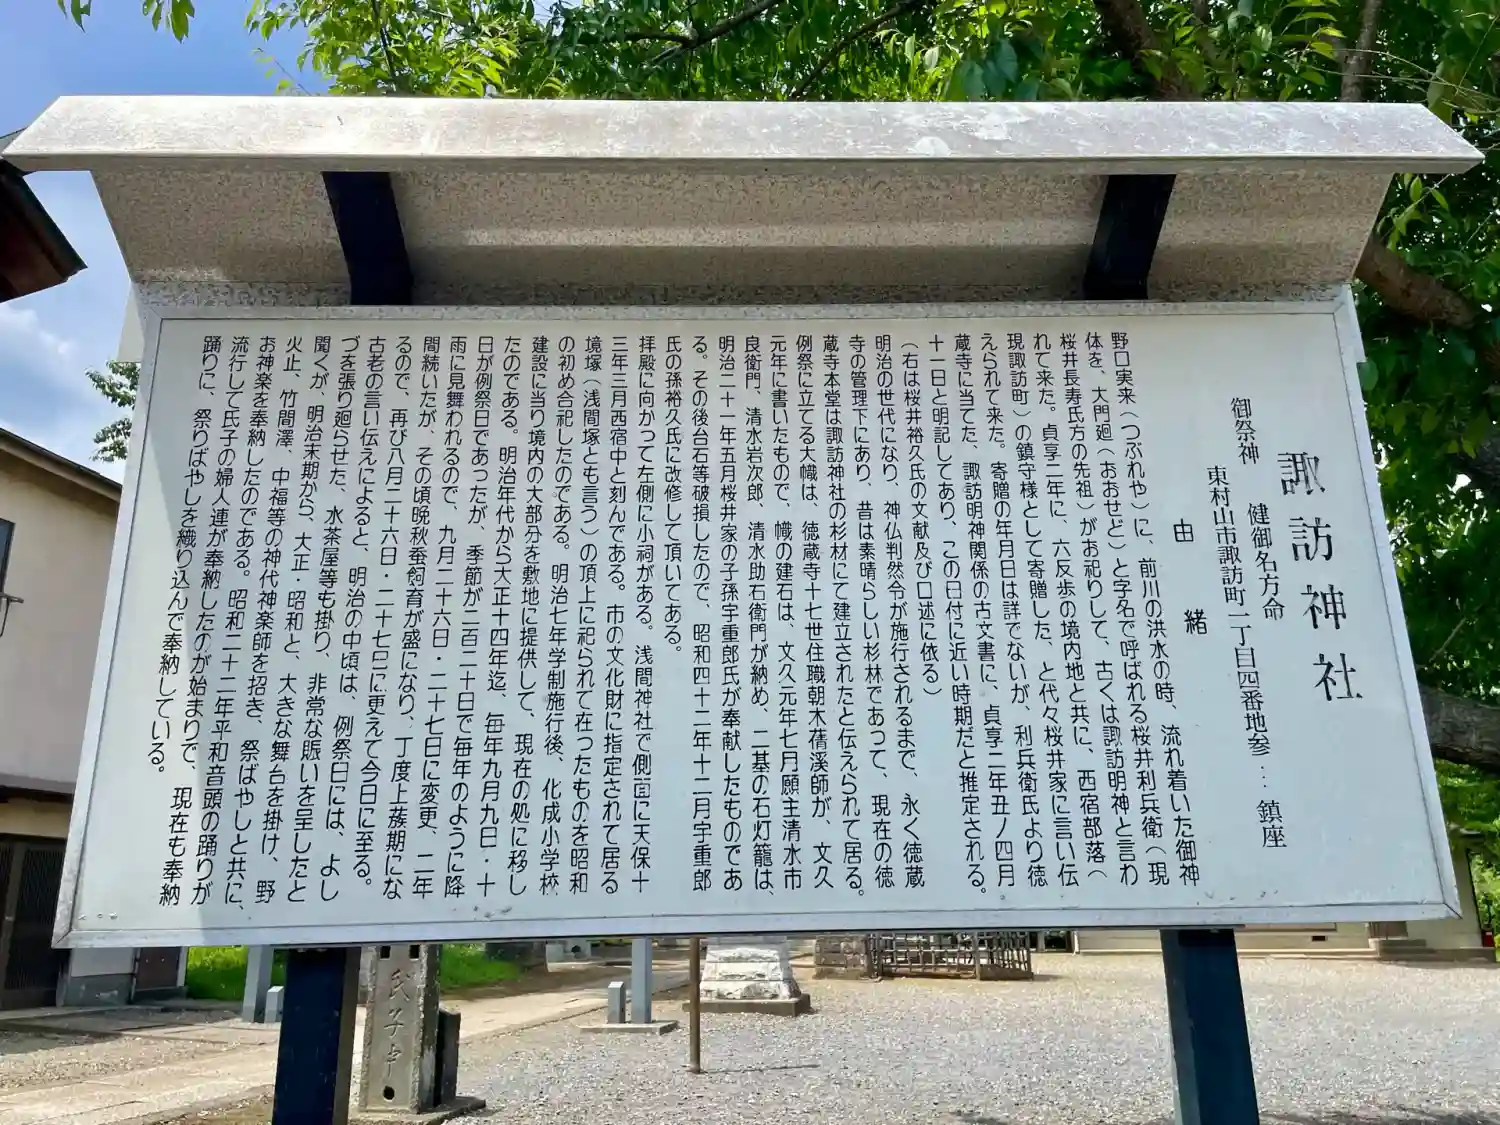 諏訪神社
御祭神　健御名方命
東村山市諏訪町一丁目四番地参…鎮座
由緒
野口実来（つぶれや）に、前川の洪水の時、流れ着いた御神
体を、大門廻（おおせど）と字名で呼ばれる桜井利兵衛（現
桜井長寿氏方の先祖）がお祀りして、古くは諏訪明神と言わ
れて来た。貞享二年に、六反歩の境内地と共に、西宿部落（
現諏訪町）の鎮守様として寄贈した、と代々桜井家に言い伝
えられて来た。寄贈の年月日は詳でないが、利兵衛氏より徳
蔵寺に当てた、諏訪明神関係の古文書に、貞享二年丑ノ四月
十一日と明記してあり、この日付に近い時期だと推定される。
（右は桜井裕久氏の文献及び口述に依る）
明治の世代になり、神仏判然令が施行されるまで、永く徳蔵
寺の管理下にあり、昔は素晴らしい杉林であって、現在の徳
蔵寺本堂は諏訪神社の杉材にて建立されたと伝えられて居る。
例祭に立てる大幟は、徳蔵寺十七世住職朝木蒨溪師が、文久
元年に書いたもので、幟の建石は、文久元年七月願主清水市
良衛門、清水岩次郎、清水助右衛門が納め、二基の石灯籠は、
明治二十一年五月桜井家の子孫宇重郎氏が奉献したものであ
る。その後台石等破損したので、昭和四十二年十二月宇重郎
氏の孫裕久氏に改修して頂いてある。
拝殿に向かつて左側に小祠がある。浅間神社で側面に天保十
三年三月西宿中と刻んである。市の文化財に指定されて居る
境塚（浅間塚とも言う）の頂上に祀られて在ったものを昭和
の初め合祀したのである。明治七年学制施行後、化成小学校
建設に当り境内の大部分を敷地に提供して、現在の処に移し
たのである。明治年代から大正十四年迄、毎年九月九日・十
日が例祭日であったが、季節が二百二十日で毎年のように降
雨に見舞われるので、九月二十六日・二十七日に変更、二年
間続いたが、その頃晩秋蚕飼育が盛になり、丁度上蔟期にな
るので、再び八月二十六日・二十七日に更えて今日に至る。
古老の言い伝えによると、明治の中頃は、例祭日には、よし
づを張り廻らせた、水茶屋等も掛り、非常な賑いを呈したと
聞くが、明治末期から、大正・昭和と、大きな舞台を掛け、野
火止、竹間澤、中福等の神代神楽師を招き、祭ばやしと共に、
お神楽を奉納したのである。昭和二十二年平和音頭の踊りが
流行して氏子の婦人連が奉納したのが始まりで、現在も奉納
踊りに、祭りばやしを織り込んで奉納している。
氏子中